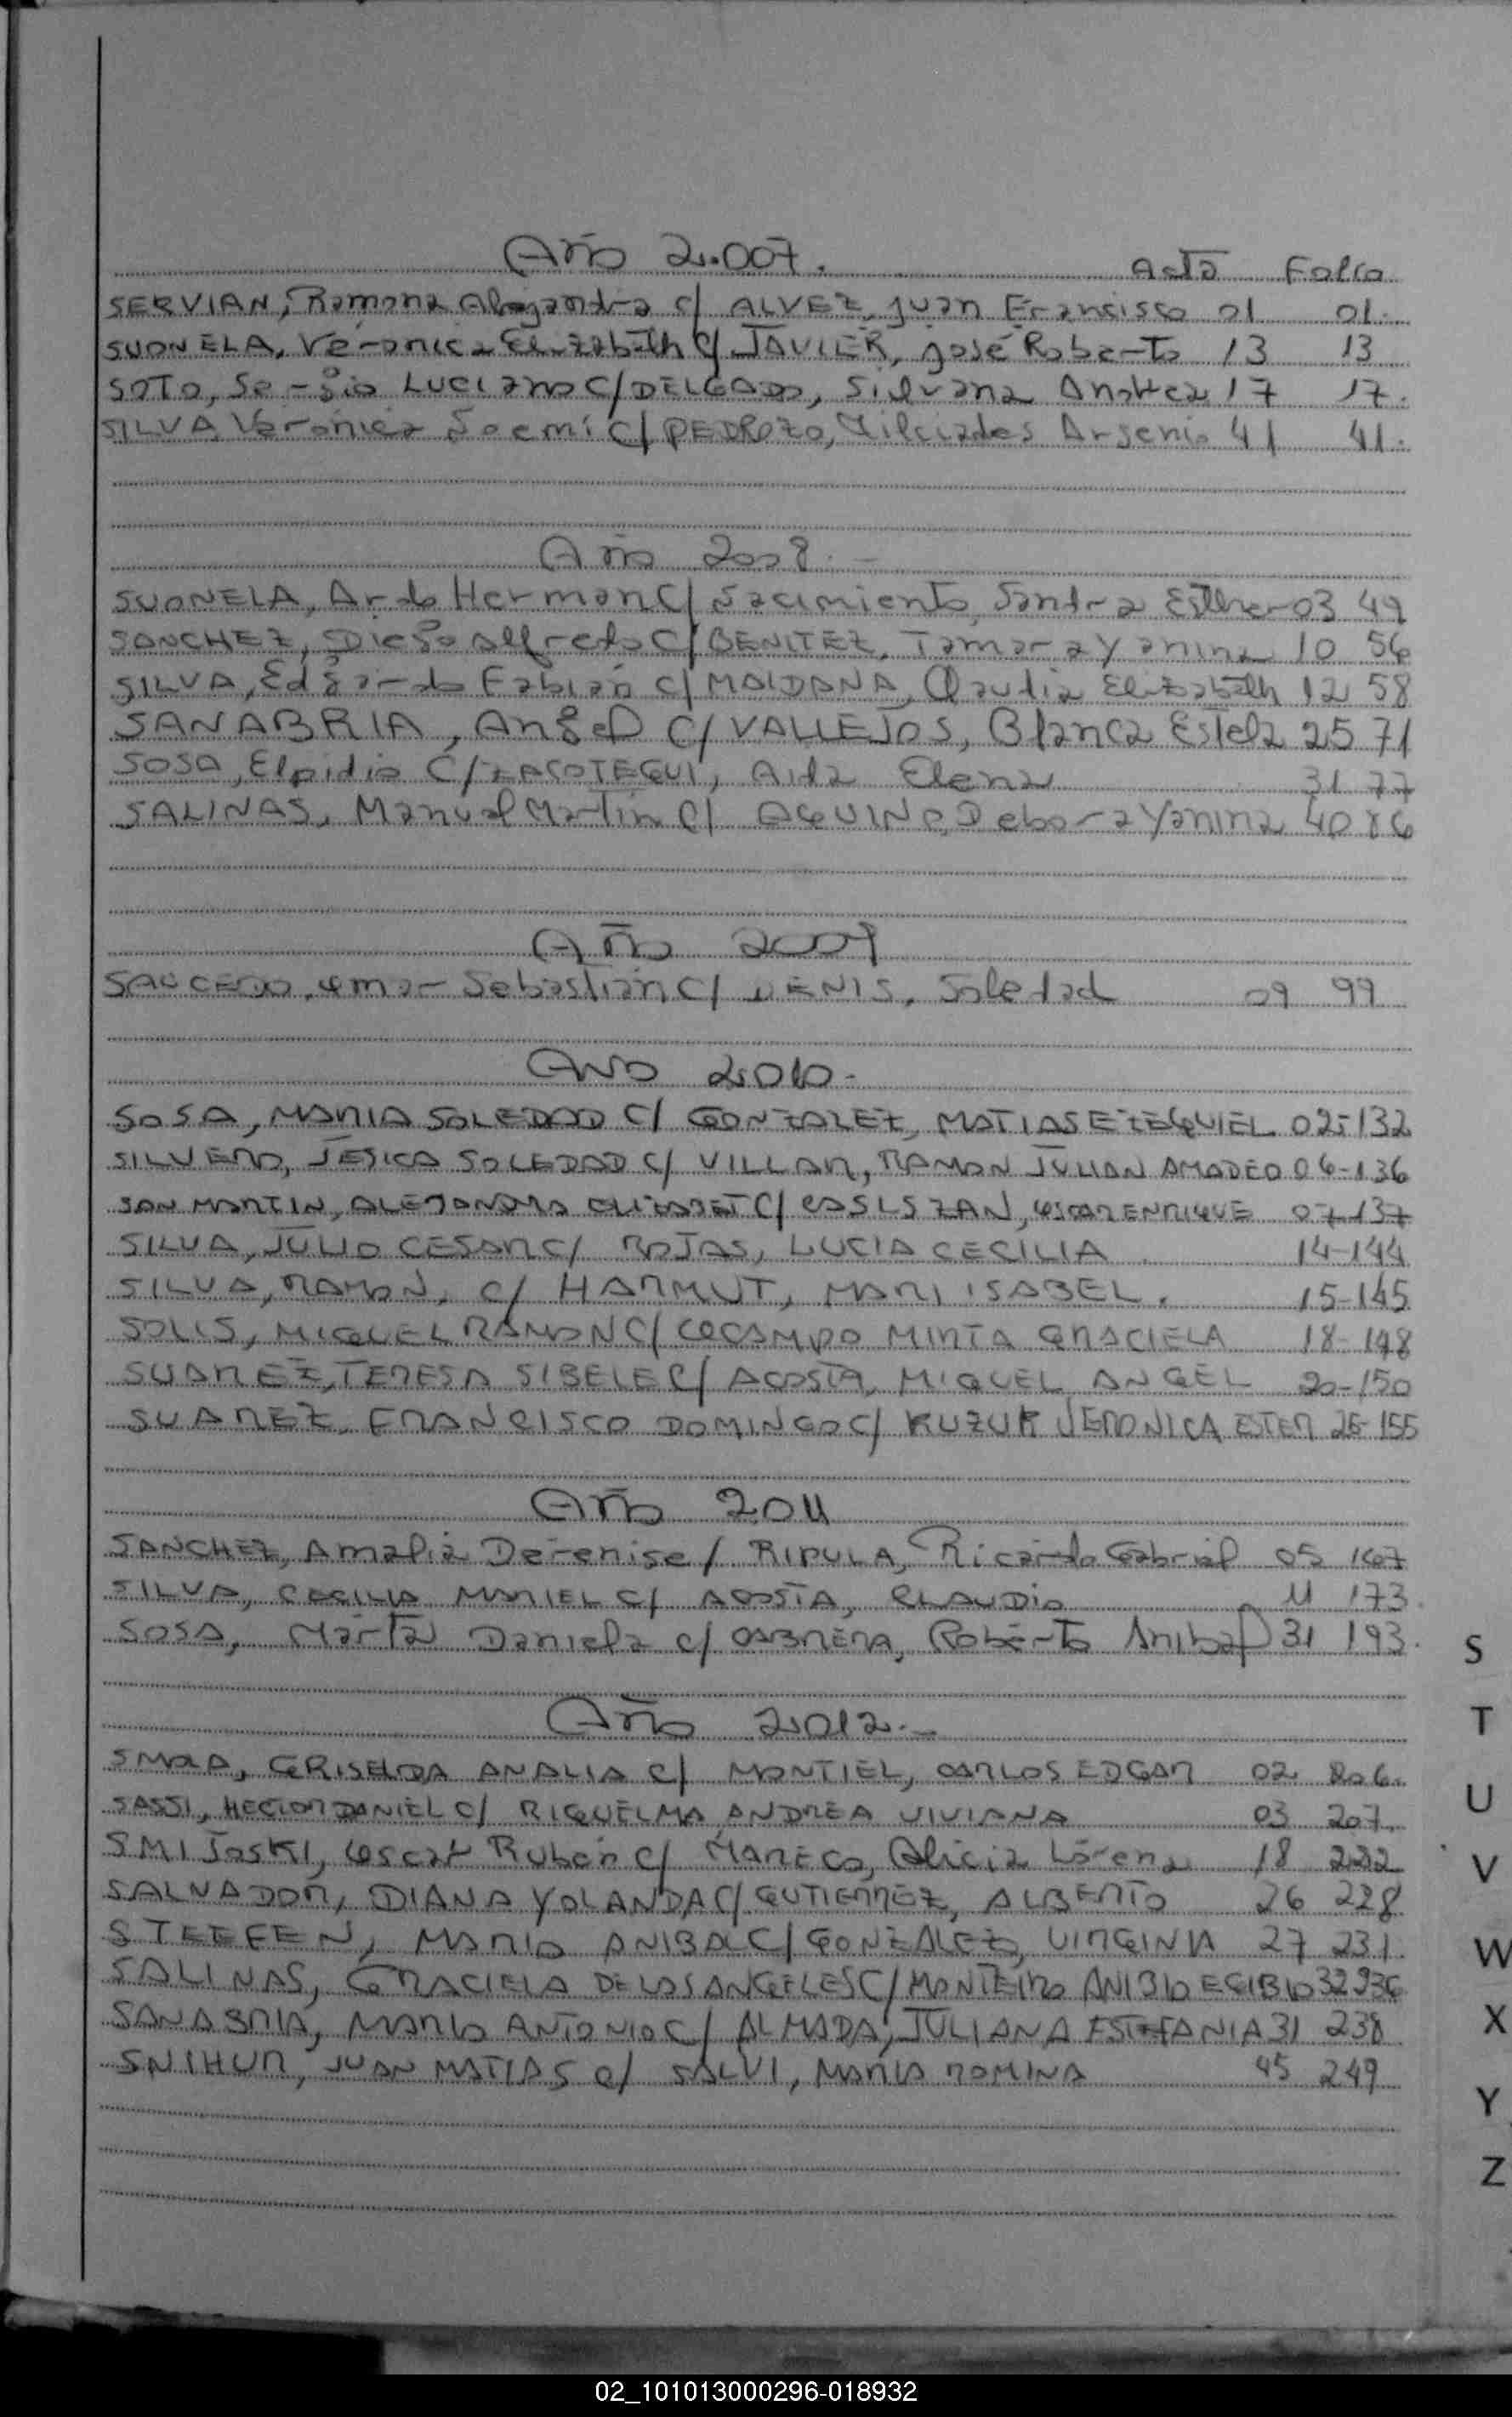 Año 2.007. Acta Folio
SERVIAN, Ramona Alejandra c/ ALVEZ, Juan Francisco 01 01.
SUONELA, Veronica Elizabeth c/ JAVIER, José Roberto 13 13
SOTO, Sergio Luciano C/ DELGADO, Silvana Andrea 17 17.
SILVA, Veronica Noemí C/ PEDROZO, Milciades Arsenio 41 41.
Año 2008.-
SUONELA, Ardo Herman C/ Nacimiento, Sandra Esther 03 49
SANCHEZ, Diego Alfredo C/ BENITEZ, Tamara Yanina 10 56
SILVA, Edgardo Fabián c/ MAIDANA, Claudia Elizabeth 12 58
SANABRIA, Angel C/ VALLEJOS, Blanca Estela 25 71
SOSA, Elpidio C/ ZACOTEGUI, Aida Elena 31 77
SALINAS, Manuel Martín C/ AQUINO, Debora Yanina 40 86
Año 2009
SAUCEDO, Omar Sebastian C/ DENIS, Soledad 09 99
Año 2010.-
SOSA, MARIA SOLEDAD C/ GONZALEZ, MATIAS EZEQUIEL 02-132
SILVERO, JESICA SOLEDAD C/ VILLAR, RAMON JULIAN AMADEO 06-136
SAN MARTIN, ALEJANDRA C/ OSCAR ENRIQUE 07-137
SILVA, JULIO CESAR C/ ROJAS, LUCIA CECILIA 14-144
SILVA, RAMON, c/ HARMUT, MARI ISABEL. 15-145
SOLIS, MIGUEL RAMON C/ OCAMPO MIRTA GRACIELA 18-148
SUAREZ, TERESA SIBELE C/ ACOSTA, MIGUEL ANGEL 20-150
SUAREZ, FRANCISCO DOMINGO C/ KUZUK VERONICA ESTER 25-155
Año 2011
SANCHEZ, Amalia Derenise / RIPULA, Ricardo Gabriel 05 167
SILVA, CECILIA MARIEL C/ ACOSTA, CLAUDIO 11 173.
SOSA, Marta Daniela c/ CABRERA, Roberto Anibal 31 193.
Año 2012.-
SMOLA, GRISELDA ANALIA C/ MONTIEL, CARLOS EDGAR 02 206.
SASSI, HECTOR DANIEL C/ RIQUELMA ANDREA VIVIANA 03 207.
SMIJOSKI, Oscar Rubén c/ MARECO, Alicia Lorena 18 222
SALVADOR, DIANA YOLANDA C/ GUTIERREZ, ALBERTO 26 228
STEEFEN, MARIO ANIBAL C/ GONZALEZ, VIRGINIA 27 231.
SALINAS, GRACIELA DE LOS ANGELES C/ MONTEIRO 32 236
SANABRIA, MARIO ANTONIO C/ ALMADA, JULIANA ESTEFANIA 31 238
SNIHUR, JUAN MATIAS c/ SALVI, MARIA ROMINA 45 249
S
T
U
V
W
X
Y
Z
02_101013000296-018932